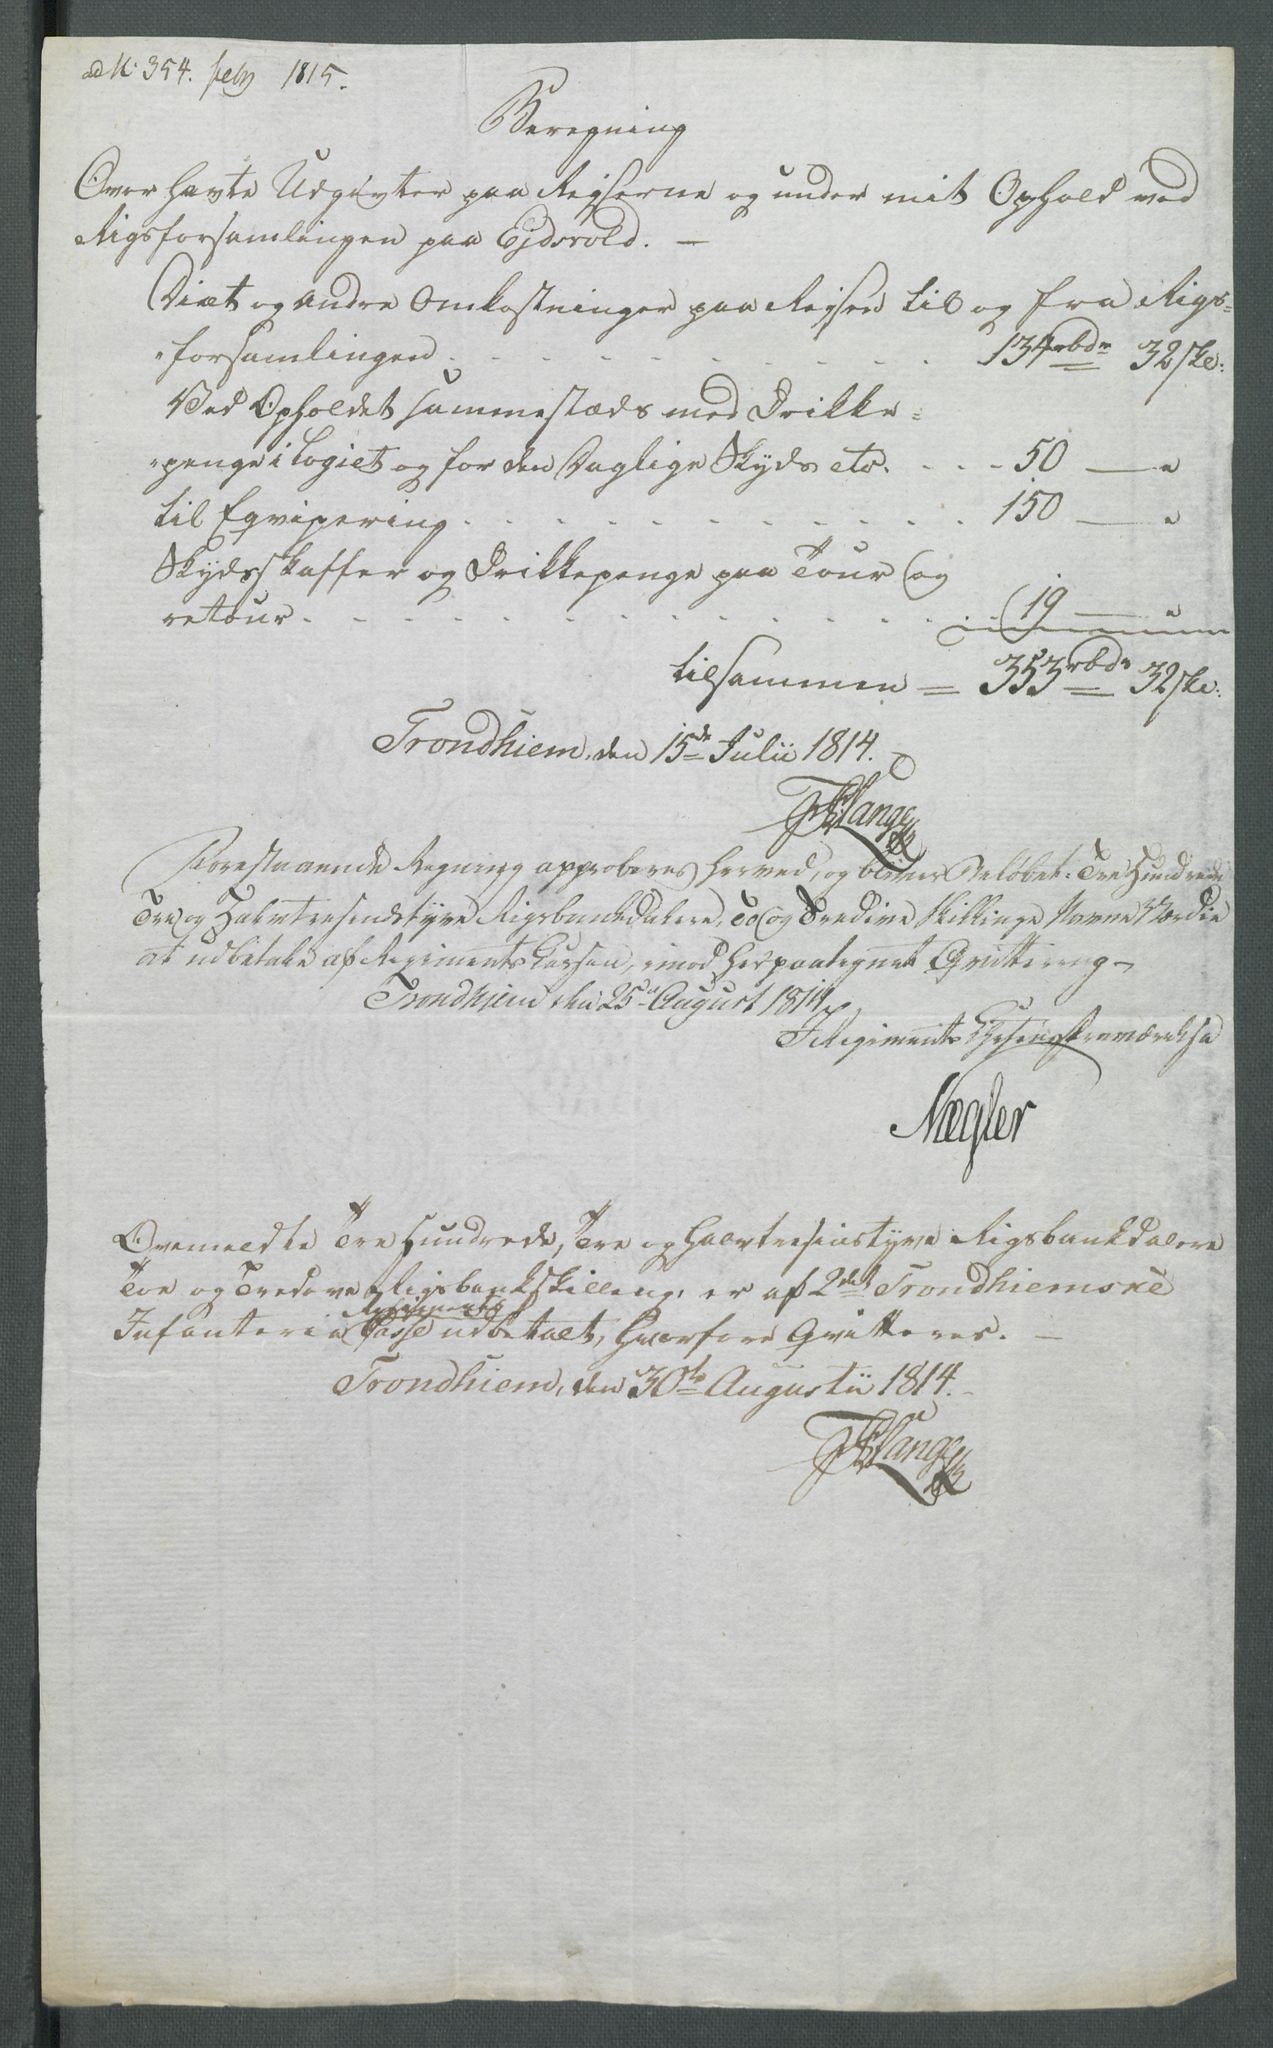 ad No 354. feby 1815.
Beregning
Over havte Udgivter paa Rejserne og under mit Ophold ved
Rigsforsamlingen paa Ejdsvold. —
Diæt og andre Omkostninger paa Rejsen til og fra Rigs=
"forsamlingen . . . . . . . . . . 134 rbdr 32 ske:
Ved Opholdet sammestæds med Drikke=
"penge i Logiet og for den Daglige Skyds etc. . . . . 50 — "
til Eqvipering . . . . . . . . . . 150 — "
Skydsskaffer og Drikkepenge paa Tour og
retour . . . . . . . . . . . . 19 — "
tilsammen = 353 rbdr 32 ske:
Trondhiem, den 15de Julii 1814.
Lange
Forestaaende Regning approberes herved, og bliver Beløbet: Tre Hundrede
Tre og Halvtresindstyve Rigsbankdalere, To og Tredive Skillinge Navne Værdie
at udbetale af Regiments Cassen, imod herpaategnet Qvittering —
Trondhjem den 25de August 1814.
I Regiments Chefens Fraværelse
Nægler
Ovenmeldte Tre Hundrede, Tre og Halvtresinstyve Rigsbankdalere
Toe og Tredeve Rigsbankskilling, er af 2det Trondhiemske
Infanterie Regiments Casse udbetalt, hvorfore Qvitteres. —
Trondhiem, den 30te Augustii 1814. -
Lange